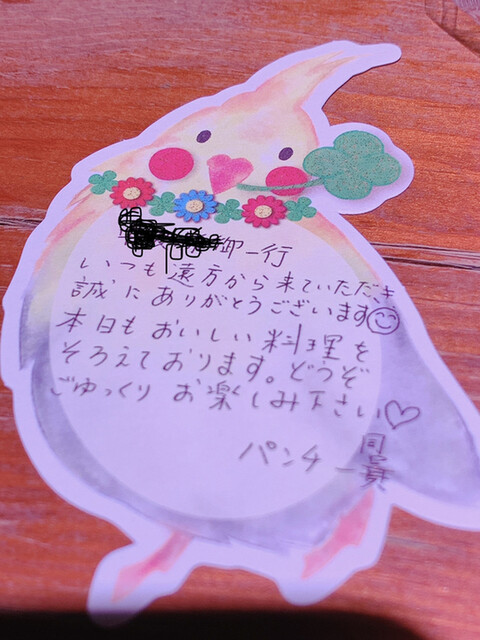 御一行
いつも遠方から来ていただき
誠にありがとうございます
本日もおいしい料理を
そろえております。どうぞ
ごゆっくりお楽しみ下さい♡
パンチ一同